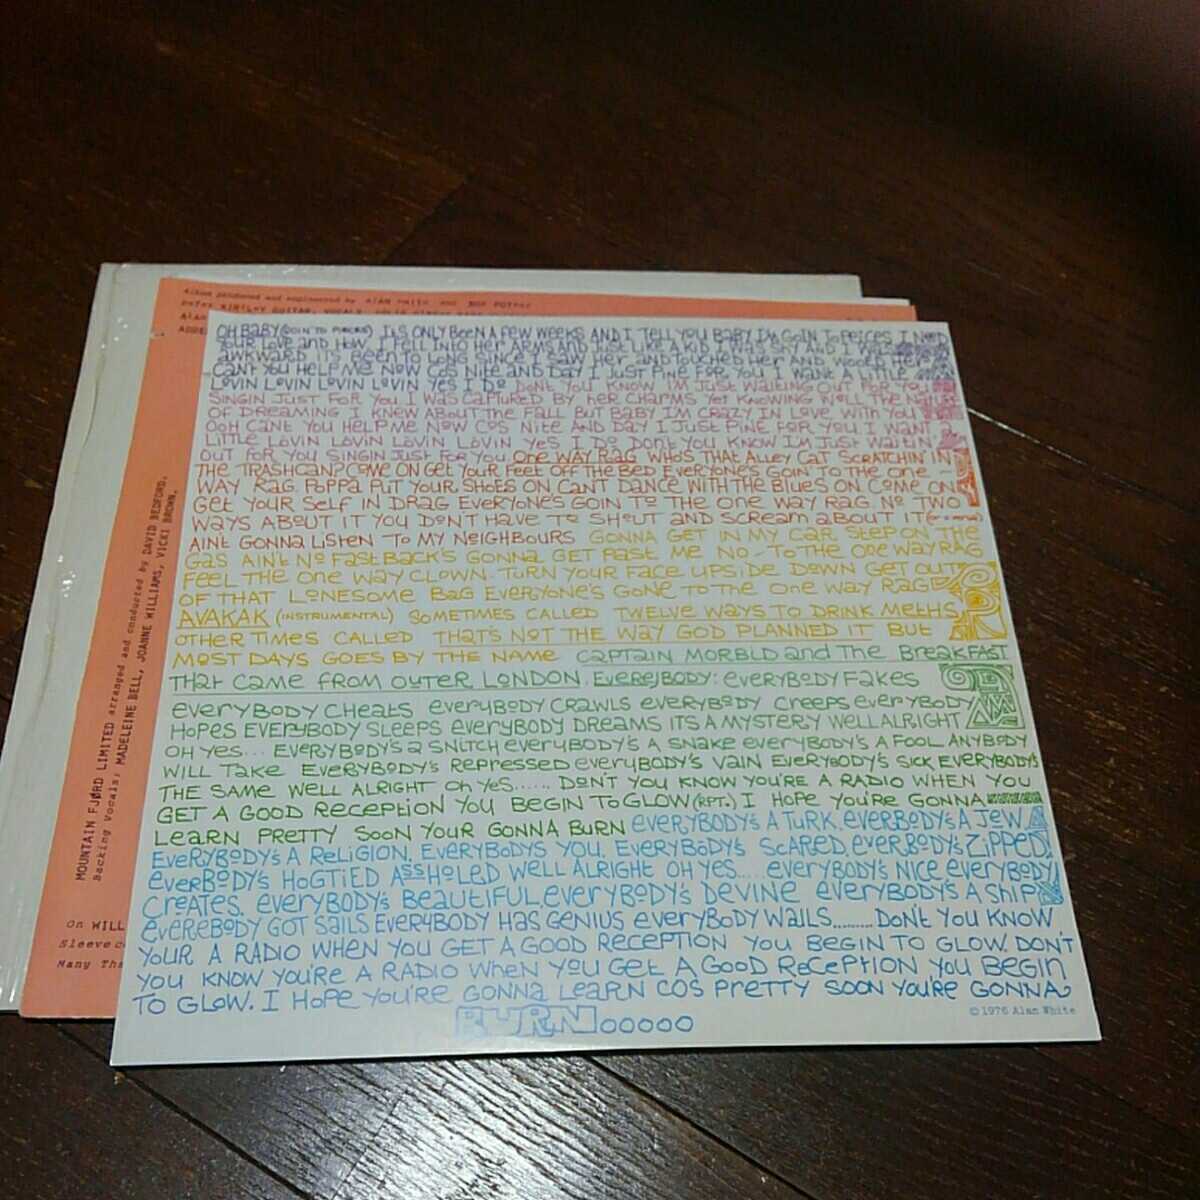 Album produced and engineered by ALAN White and BOB POTTER
Peter KIRTLEY GUITAR, VOCALS
ALAN
MOUNTAIN FJØRD LIMITED arranged and conducted by DAVID BEDFORD.
Backing vocals; MADELEINE BELL, JOANNE WILLIAMS, VICKI BROWN.
On WILL
Sleeve co
Many Tha
OH BABY (GOIN TO PIECES) ITS ONLY BEEN A FEW WEEKS AND I TELL YOU BABY IM GOIN TO PEICES I NEED
YOUR LOVE and HOW I FELL INTO HER ARMS AND JUST LIKE A KID I WAS SHY AND I WAS
AWKWARD ITS BEEN TO LONG SINCE I SAW HER and TOUCHED HER AND WOOED HER
CANT YOU HELP ME NOW COS NITE AND DAY I JUST PINE FOR YOU I WANT A LITTLE
LOVIN LOVIN LOVIN LOVIN YES I DO DONT YOU KNOW IM JUST WAITING OUT FOR YOU
SINGIN JUST FOR YOU I WAS CAPTURED BY HER CHARMS YET KNOWING WELL THE NATURE
OF DREAMING I KNEW ABOUT THE FALL BUT BABY IM CRAZY IN LOVE WITH YOU
OOH CANT YOU HELP ME NOW COS NITE AND DAY I JUST PINE FOR YOU I WANT a
LITTLE LOVIN LOVIN LOVIN LOVIN YES I DO DONT YOU KNOW I'M JUST WAITIN
OUT FOR YOU SINGIN JUST FOR YOU. ONE WAY RAG WHO'S THAT ALLEY CAT SCRATCHIN' IN
THE TRASHCAN? COME ON GET YOUR FEET OFF THE BED EVERYONE'S GOIN' TO THE ONE ~
WAY RAG. POPPA PUT YOUR SHOES ON CANT DANCE WITH THE BLUES ON COME ON
GET YOUR SELF IN DRAG EVERYONE'S GOIN TO THE ONE WAY RAG. NO TWO
WAYS ABOUT IT YOU DON'T HAVE TO SHOUT AND SCREAM ABOUT IT
AINT GONNA LISTEN TO MY NEIGHBOURS GONNA GET IN MY CAR STEP ON THE
GAS AIN'T NO FASTBACK'S GONNA GET PAST ME NO ~ TO THE ONE WAY RAG
FEEL THE ONE WAY CLOWN. TURN YOUR FACE UPSIDE DOWN GET OUT
OF THAT LONESOME BAG EVERYONE'S GONE TO THE ONE WAY RAG
AVAKAK (INSTRUMENTAL) SOMETIMES CALLED TWELVE WAYS TO DRINK METHS
OTHER TIMES CALLED THAT'S NOT THE WAY GOD PLANNED IT BUT
MOST DAYS GOES BY THE NAME CAPTAIN MORBID and THE BREAKFAST
THAT CAME FROM OUTER LONDON. EVEREJBODY: EVERYBODY FAKES
EVERYBODY CHEATS EVERYBODY CRAWLS EVERYBODY CREEPS EVERYBODY
HOPES EVERYBODY SLEEPS EVERYBODY DREAMS ITS A MYSTERY WELL ALRIGHT
OH YES... EVERYBODY'S A SNITCH EVERYBODY'S A SNAKE EVERYBODY'S A FOOL ANYBODY
WILL TAKE EVERYBODY'S REPRESSED EVERYBODY'S VAIN EVERYBODY'S SICK EVERYBODY'S
THE SAME WELL ALRIGHT OH YES...... DON'T YOU KNOW YOU'RE A RADIO WHEN YOU
GET A GOOD RECEPTION YOU BEGIN TO GLOW (RPT.) I HOPE YOU'RE GONNA
LEARN PRETTY SOON YOUR GONNA BURN EVERYBODY'S A TURK. EVERBODY'S A JEW
EVERYBODY'S A RELIGION. EVERYBODYS YOU. EVERYBODY'S SCARED. EVERBODY'S ZIPPED
EVERBODY'S HOGTIED ASSHOLED WELL ALRIGHT OH YES..... EVERYBODY'S NICE EVERYBODY
CREATES. EVERYBODY'S BEAUTIFUL. EVERYBODY'S DEVINE EVERYBODY'S A SHIP
EVEREBODY GOT SAILS EVERYBODY HAS GENIUS EVERYBODY WAILS......... DON'T YOU KNOW
YOUR A RADIO WHEN YOU GET A GOOD RECEPTION YOU BEGIN TO GLOW. DON'T
YOU KNOW YOU'RE A RADIO WHEN YOU GET A GOOD RECEPTION YOU BEGIN
TO GLOW. I HOPE YOU'RE GONNA LEARN COS PRETTY SOON YOU'RE GONNA
BURNOOOOO
© 1976 Alan White